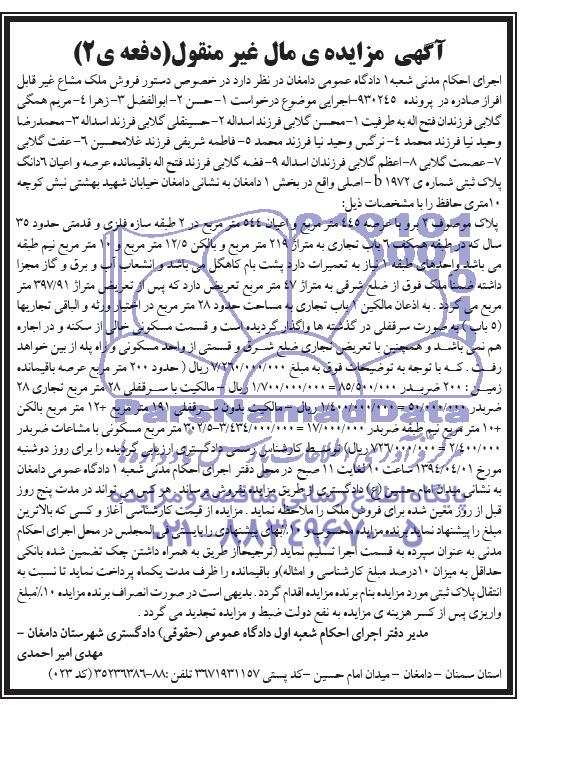 آگهی مزایده ی مال غیر منقول(دفعه ی۲)
اجرای احکام مدنی شعبه۱ دادگاه عمومی دامغان در نظر دارد در خصوص دستور فروش ملک مشاع غیر قابل
افراز صادره در پرونده ۹۳۰۲۴۵-اجرایی موضوع درخواست ۱-حسن ۲-ابوالفضل ۳-زهرا ۴-مریم همگی
گلابی فرزندان فتح اله به طرفیت ۱-محسن گلابی فرزند اسداله ۲-حسینقلی گلابی فرزند اسداله ۳-محمدرضا
وحید نیا فرزند محمد ۴-نرگس وحید نیا فرزند محمد ۵-فاطمه شریفی فرزند غلامحسین ۶-عفت گلابی
۷-عصمت گلابی ۸-اعظم گلابی فرزندان اسداله ۹-فضه گلابی فرزند فتح اله باقیمانده عرصه و اعیان ۶دانگ
پلاک ثبتی شماره ی b ۱۹۷۲-اصلی واقع در بخش ۱ دامغان به نشانی دامغان خیابان شهید بهشتی نبش کوچه
۱۰متری حافظ را با مشخصات ذیل:
پلاک موصوف ۲ برو با عرصه ۴۴۵ متر مربع و اعیان ۵۴۴ متر مربع در ۲ طبقه سازه فلزی و قدمتی حدود ۳۵
سال که در طبقه همکف ۶ باب تجاری به متراژ ۲۱۹ متر مربع و بالکن ۱۲/۵ متر مربع و ۱۰ متر مربع نیم طبقه
می باشد واحدهای طبقه ۱ نیاز به تعمیرات دارد پشت بام کاهگل می باشد و انشعاب آب و برق و گاز مجزا
داشته ضمنا ملک فوق از ضلع شرقی به متراژ ۴۷ متر مربع تعریض دارد که پس از تعریض متراژ ۳۹۷/۹۱ متر
مربع می گردد . به اذعان مالکین ۱ باب تجاری به مساحت حدود ۲۸ متر مربع در اختیار ورثه و الباقی تجاریها
(۵ باب ) به صورت سرقفلی در گذشته ها واگذار گردیده است و قسمت مسکونی خالی از سکنه و در اجاره
هم نمی باشد و همچنین با تعریض تجاری ضلع شرق و قسمتی از واحد مسکونی و راه پله از بین خواهد
رفت . که با توجه به توضیحات فوق به مبلغ ۷/۲۶۰/۰۰۰/۰۰۰ ریال ( حدود ۲۰۰ متر مربع عرصه باقیمانده
زمین : ۲۰۰ ضربدر ۸۵/۵۰۰/۰۰۰ = ۱/۷۰۰/۰۰۰/۰۰۰ ریال - مالکیت با سرقفلی ۲۸ متر مربع تجاری ۲۸
ضربدر ۵۰/۰۰۰/۰۰۰ = ۱/۴۰۰/۰۰۰/۰۰۰ ریال - مالکیت بدون سرقفلی ۱۹۱ متر مربع +۱۲ متر مربع بالکن
+۱۰ متر مربع نیم طبقه ضربدر ۱۷/۰۰۰/۰۰۰ = ۳/۴۳۴/۰۰۰/۰۰۰-۳۰۲/۵ متر مربع مسکونی با مشاعات ضربدر
۲/۴۰۰/۰۰۰ = ۷۲۶/۰۰۰/۰۰۰ ریال) توسط کارشناس رسمی دادگستری ارزیابی گردیده را برای روز دوشنبه
مورخ ۱۳۹۴/۰۴/۰۱ ساعت ۱۰ لغایت ۱۱ صبح در محل دفتر اجرای احکام مدنی شعبه ۱ دادگاه عمومی دامغان
به نشانی میدان امام حسین (ع) دادگستری از طریق مزایده بفروش برساند. هر کس می تواند در مدت پنج روز
قبل از روز معین شده برای فروش ملک را ملاحظه نماید . مزایده از قیمت کارشناسی آغاز و کسی که بالاترین
مبلغ را پیشنهاد نماید برنده مزایده محسوب و ۱۰٪ بهای پیشنهادی را بایستی فی المجلس در محل اجرای احکام
مدنی به عنوان سپرده به قسمت اجرا تسلیم نماید (ترجیحا از طریق به همراه داشتن چک تضمین شده بانکی
حداقل به میزان ۱۰درصد مبلغ کارشناسی و امثاله)و باقیمانده را ظرف مدت یکماه پرداخت نماید تا نسبت به
انتقال پلاک ثبتی مورد مزایده بنام برنده مزایده اقدام گردد . بدیهی است در صورت انصراف برنده مزایده ۱۰٪مبلغ
واریزی پس از کسر هزینه ی مزایده به نفع دولت ضبط و مزایده تجدید می گردد .
مدیر دفتر اجرای احکام شعبه اول دادگاه عمومی (حقوقی) دادگستری شهرستان دامغان -
مهدی امیر احمدی
استان سمنان - دامغان - میدان امام حسین -کد پستی ۳۶۷۱۹۳۱۱۵۷ تلفن :۸۸-۳۵۲۳۶۳۸۶ (کد ۰۲۳)
ParsNamadData
پایگاه اطلاع رسانی مناقصه و مزایده
۰۲۱-۸۸۳۴۹۶۷۰-۵